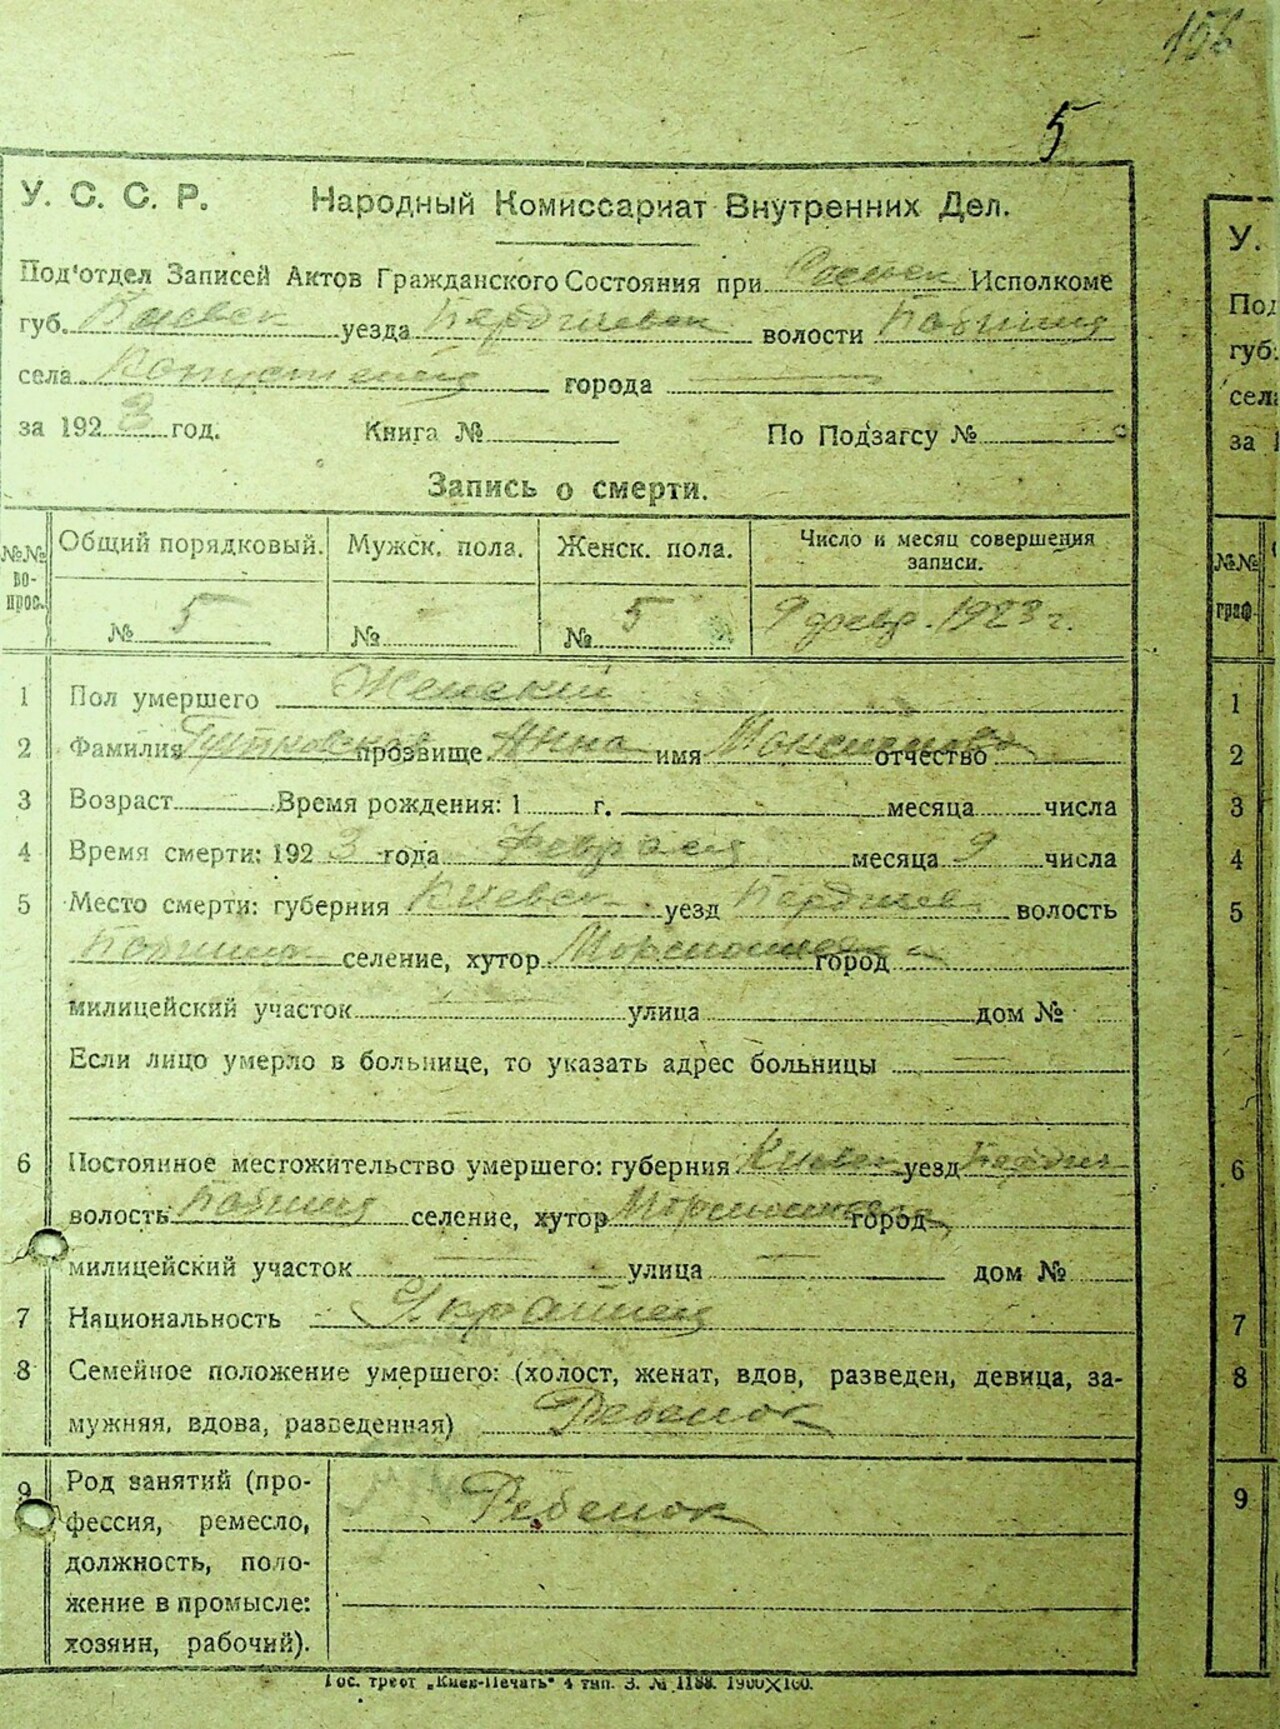 156
5
У. С. С. Р. Народный Комиссариат Внутренних Дел.
Под'отдел Записей Актов Гражданского Состояния при Исполкоме
губ. Киевск уезда Бердичевск волости
села города
за 1923 год. Книга № По Подзагсу №
Запись о смерти.
№№ вопрос. Общий порядковый. Мужск. пола. Женск. пола. Число и месяц совершения записи.
№ 5 № № 5 9 февр. 1923 г.
1 Пол умершего Женский
2 Фамилия прозвище Анна имя отчество
3 Возраст Время рождения: 1 г. месяца числа
4 Время смерти: 1923 года Февраля месяца 9 числа
5 Место смерти: губерния Киевск уезд Бердичев волость
селение, хутор город
милицейский участок улица дом №
Если лицо умерло в больнице, то указать адрес больницы
6 Постоянное местожительство умершего: губерния Киевск уезд Бердич
волость селение, хутор город
милицейский участок улица дом №
7 Национальность
8 Семейное положение умершего: (холост, женат, вдов, разведен, девица, за-
мужняя, вдова, разведенная) Ребенок
9 Род занятий (про- Ребенок
фессия, ремесло,
должность, поло-
жение в промысле:
хозяин, рабочий).
Гос. трест „Киев-Печать“ 4 тип. З. № 1188. 1900×100.
У.
Под
губ.
села
за 1
№№ граф.
1
2
3
4
5
6
7
8
9